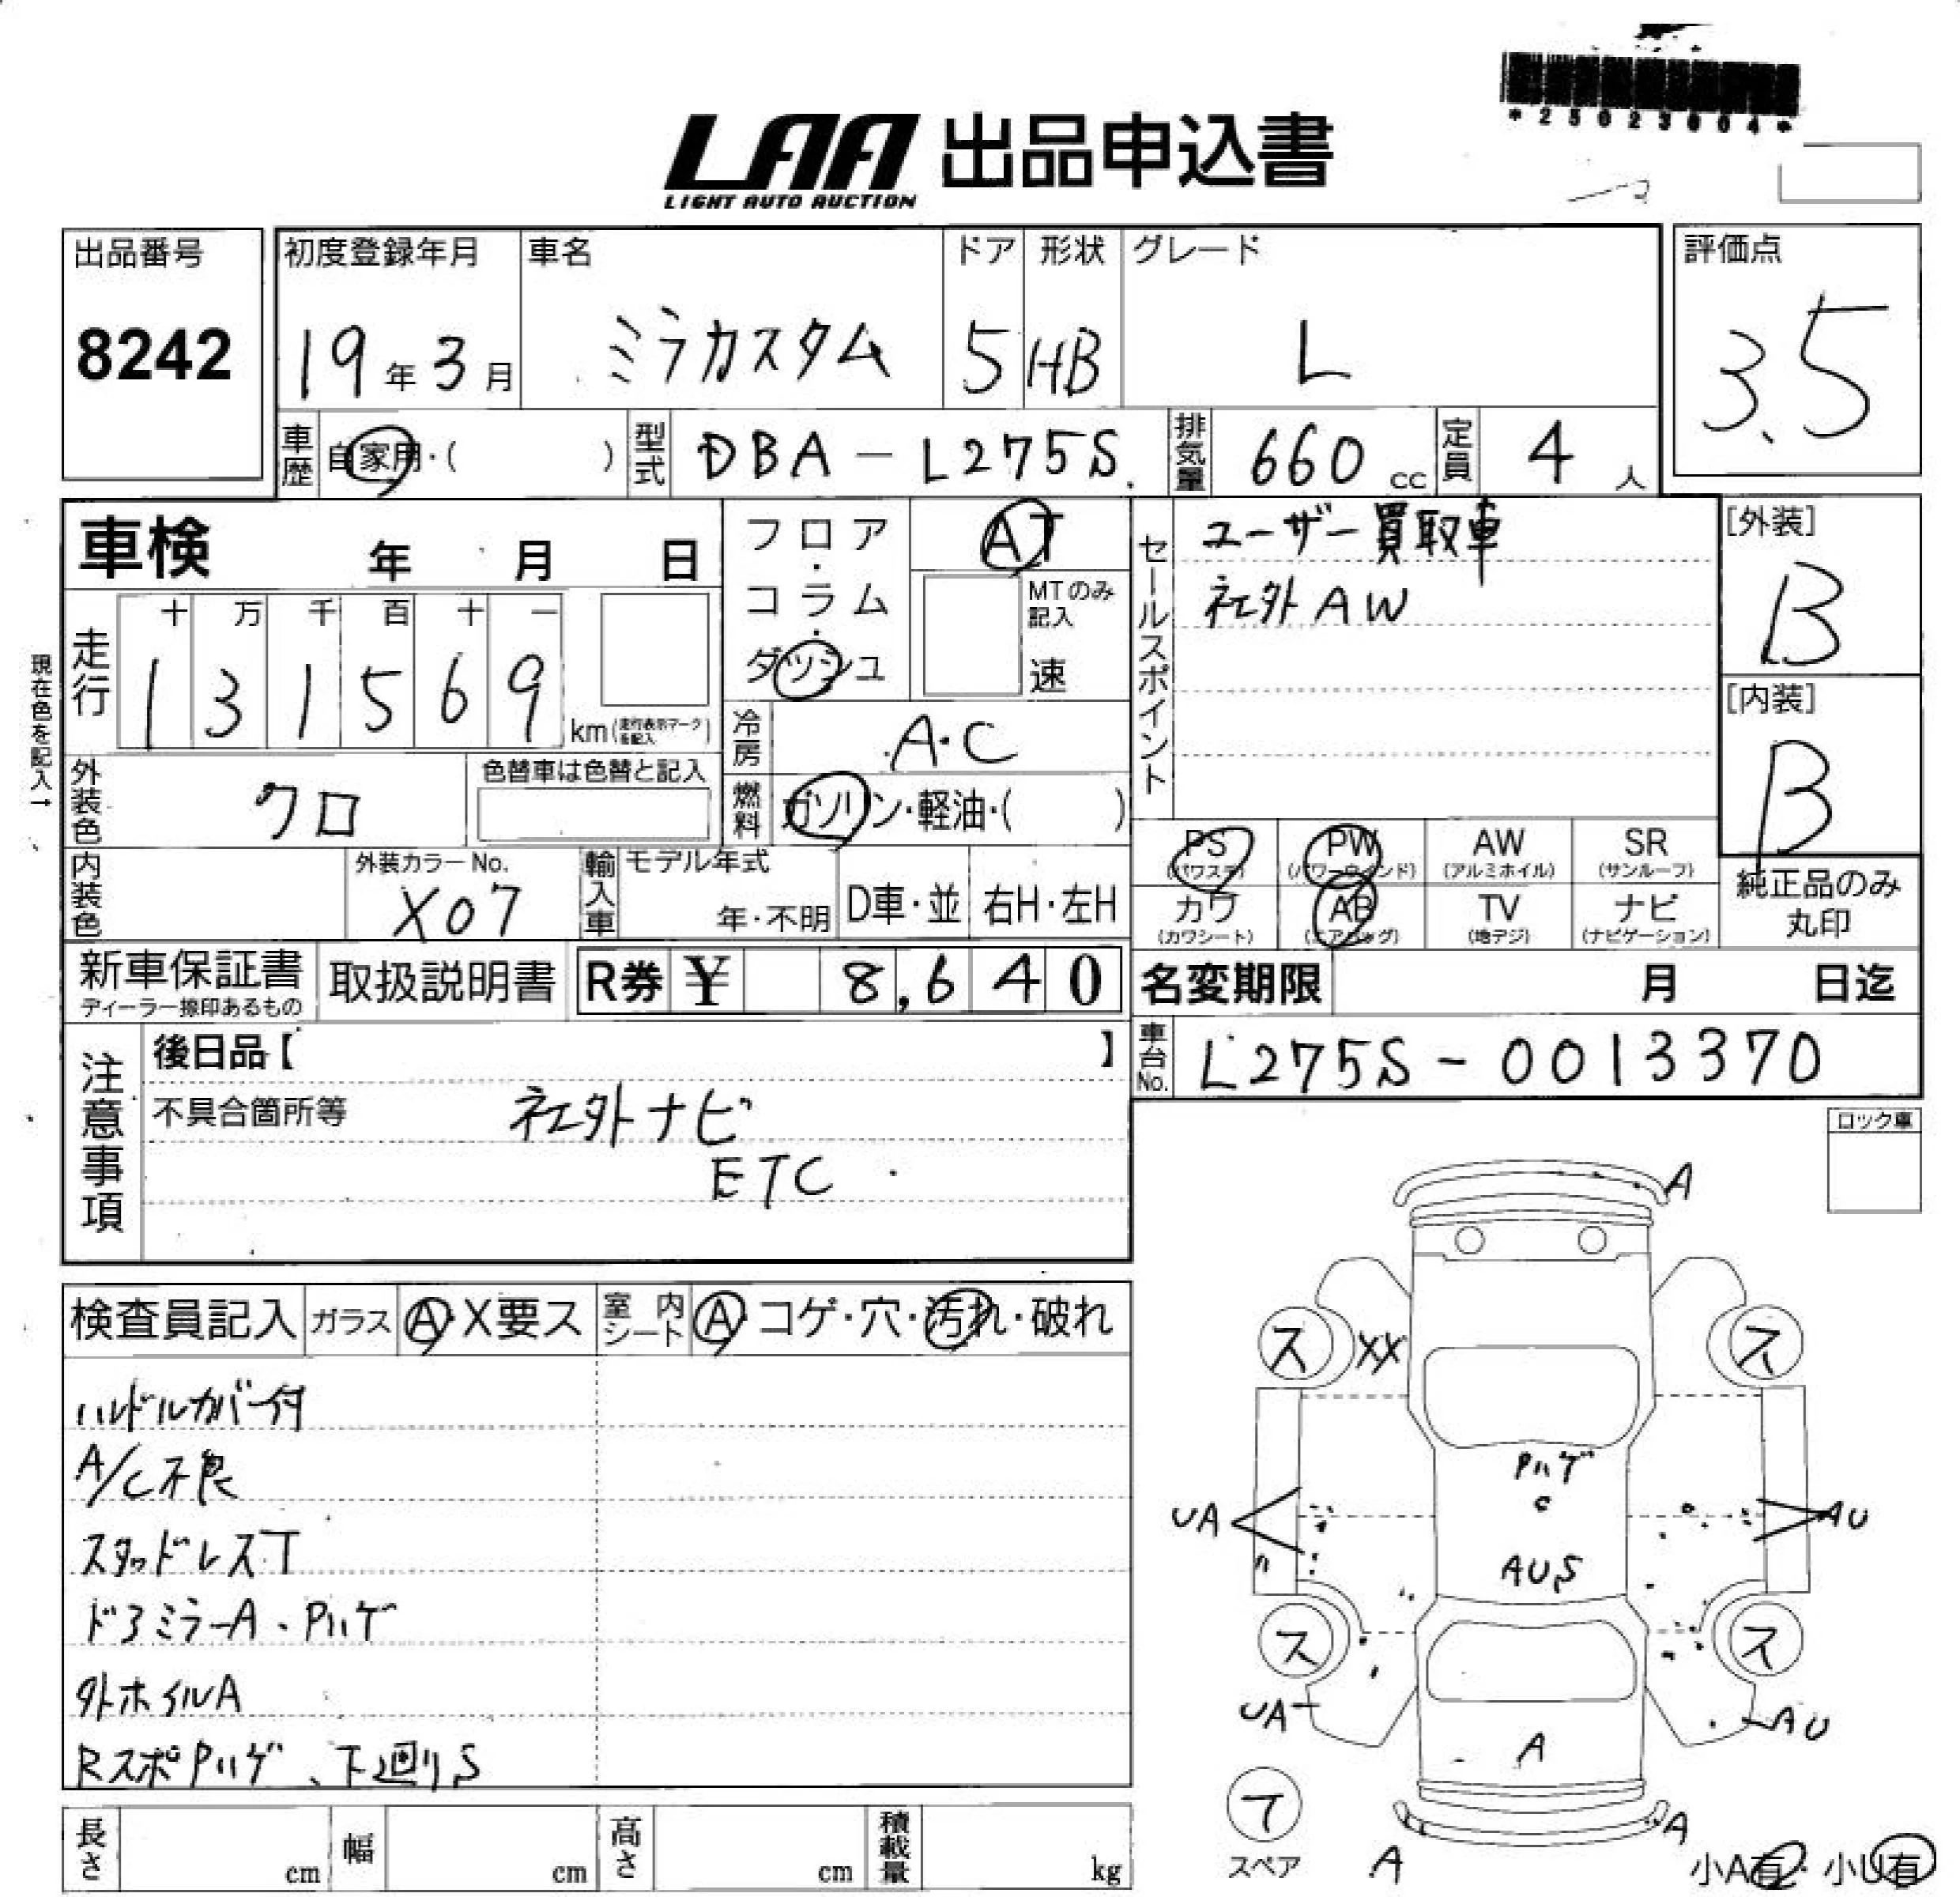 *25023604*
LAA 出品申込書
LIGHT AUTO AUCTION
出品番号
8242
初度登録年月
19年3月
車名
ミラカスタム
ドア
5
形状
HB
グレード
L
評価点
3.5
車歴
自家用・( )
型式
DBA-L275S
排気量
660 cc
定員
4 人
車検 年 月 日
フロア・コラム・ダッシュ
AT
MTのみ記入
速
セールスポイント
ユーザー買取車
社外AW
[外装]
B
[内装]
B
現在色を記入→
走行
十 万 千 百 十 一
1 3 1 5 6 9
km(走行表示マークを記入)
冷房
A・C
外装色
クロ
色替車は色替と記入
燃料
ガソリン・軽油・( )
PS (パワステ)
PW (パワーウインド)
AW (アルミホイル)
SR (サンルーフ)
カワ (カワシート)
AB (エアバッグ)
TV (地デジ)
ナビ (ナビゲーション)
純正品のみ
丸印
内装色
外装カラーNo.
X07
輸入車
モデル年式
年・不明
D車・並
右H・左H
新車保証書
ディーラー捺印あるもの
取扱説明書
R券 ¥ 8,640
名変期限 月 日迄
車台No.
L275S-0013370
注意事項
後日品【 】
不具合箇所等
社外ナビ
ETC
ロック車
検査員記入
ガラス
A・X要ス
室内シート
A・コゲ・穴・汚れ・破れ
ハンドルカバー付
A/C不良
スタッドレスT
ドアミラーA、Pハゲ
外ホイルA
RスポPハゲ、下廻りS
A
ス XX ス
Pハゲ
C
UA AU
AUS
ス ス
UA AU
A
テ
スペア
A A
小A有・小U有
長さ cm
幅 cm
高さ cm
積載量 kg